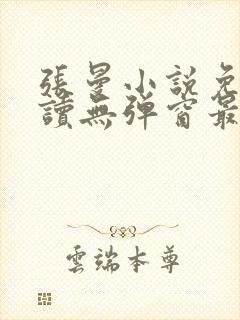 張曼小說免
讀無彈窗最
雲端本尊